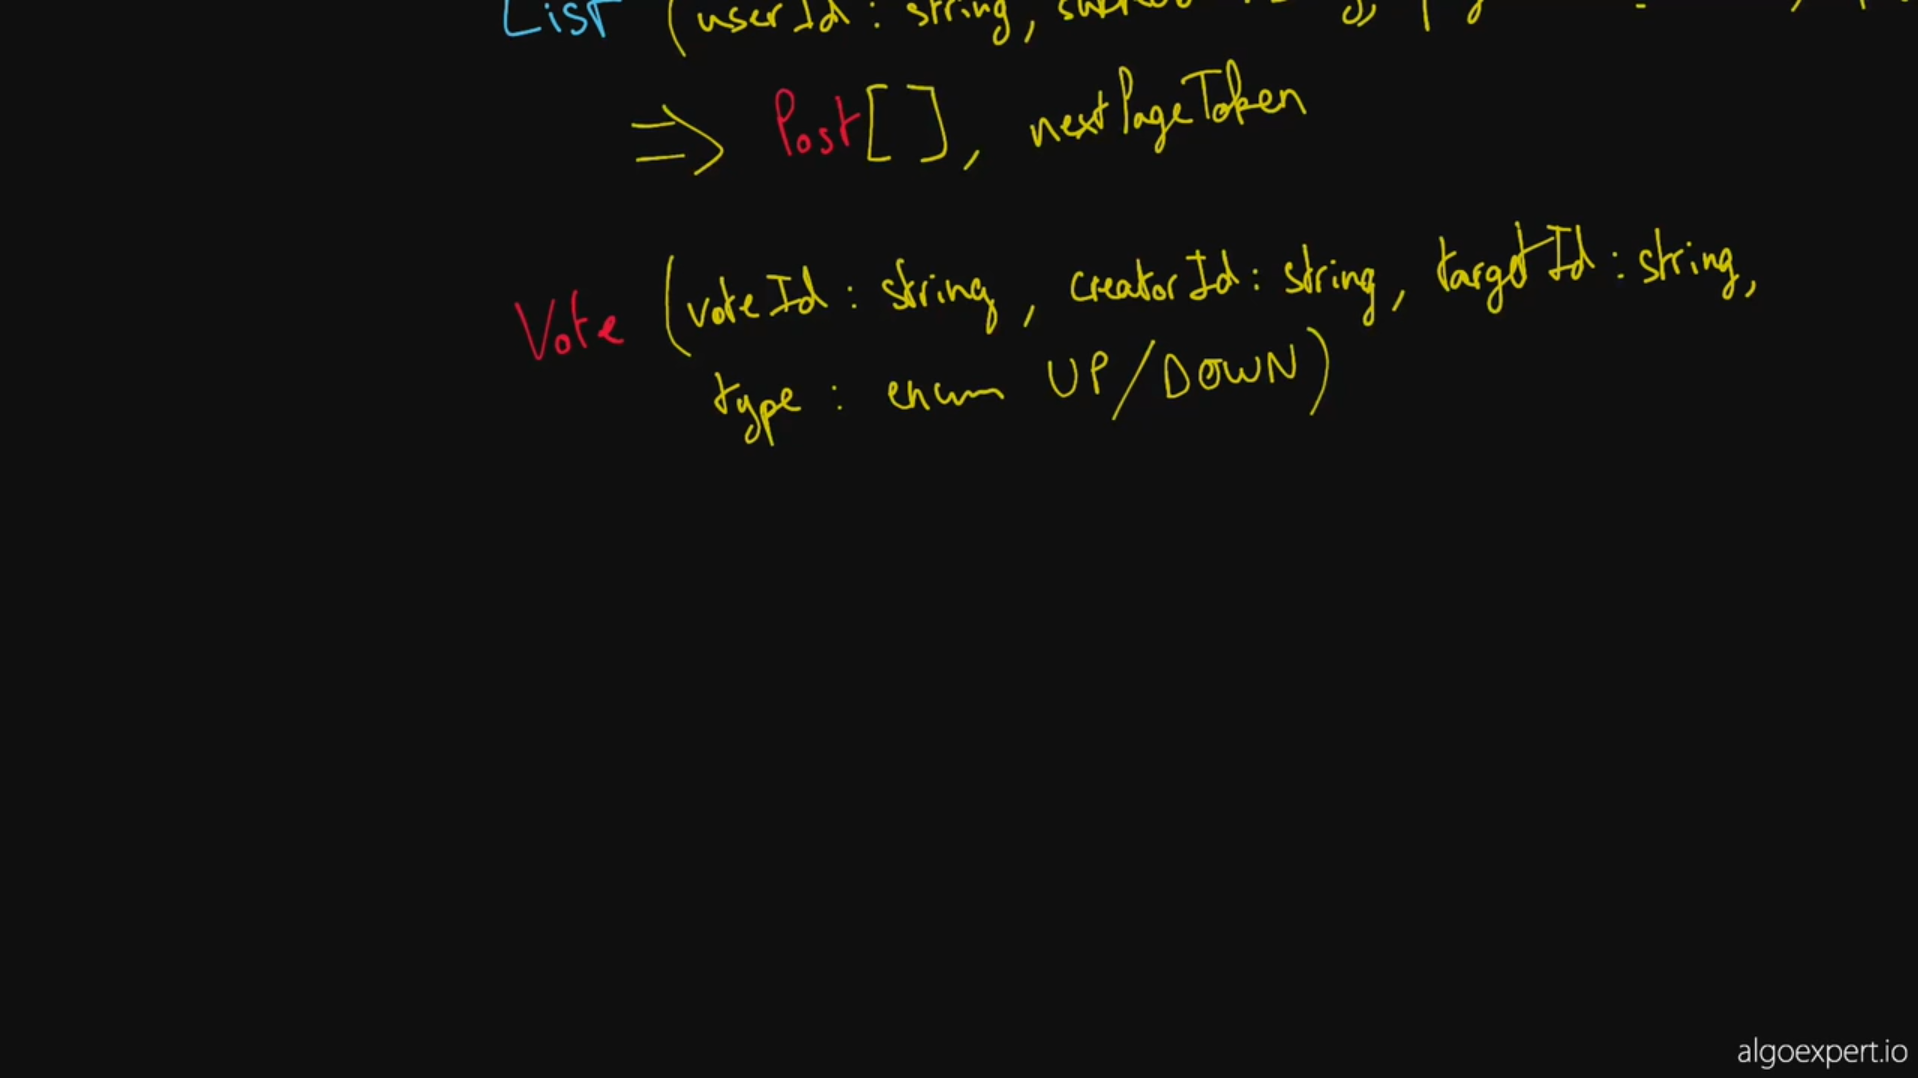 List (userId: string,
⇒ Post[], nextPageToken
Vote (voteId: string, creatorId: string, targetId: string,
type: enum UP/DOWN)
algoexpert.io